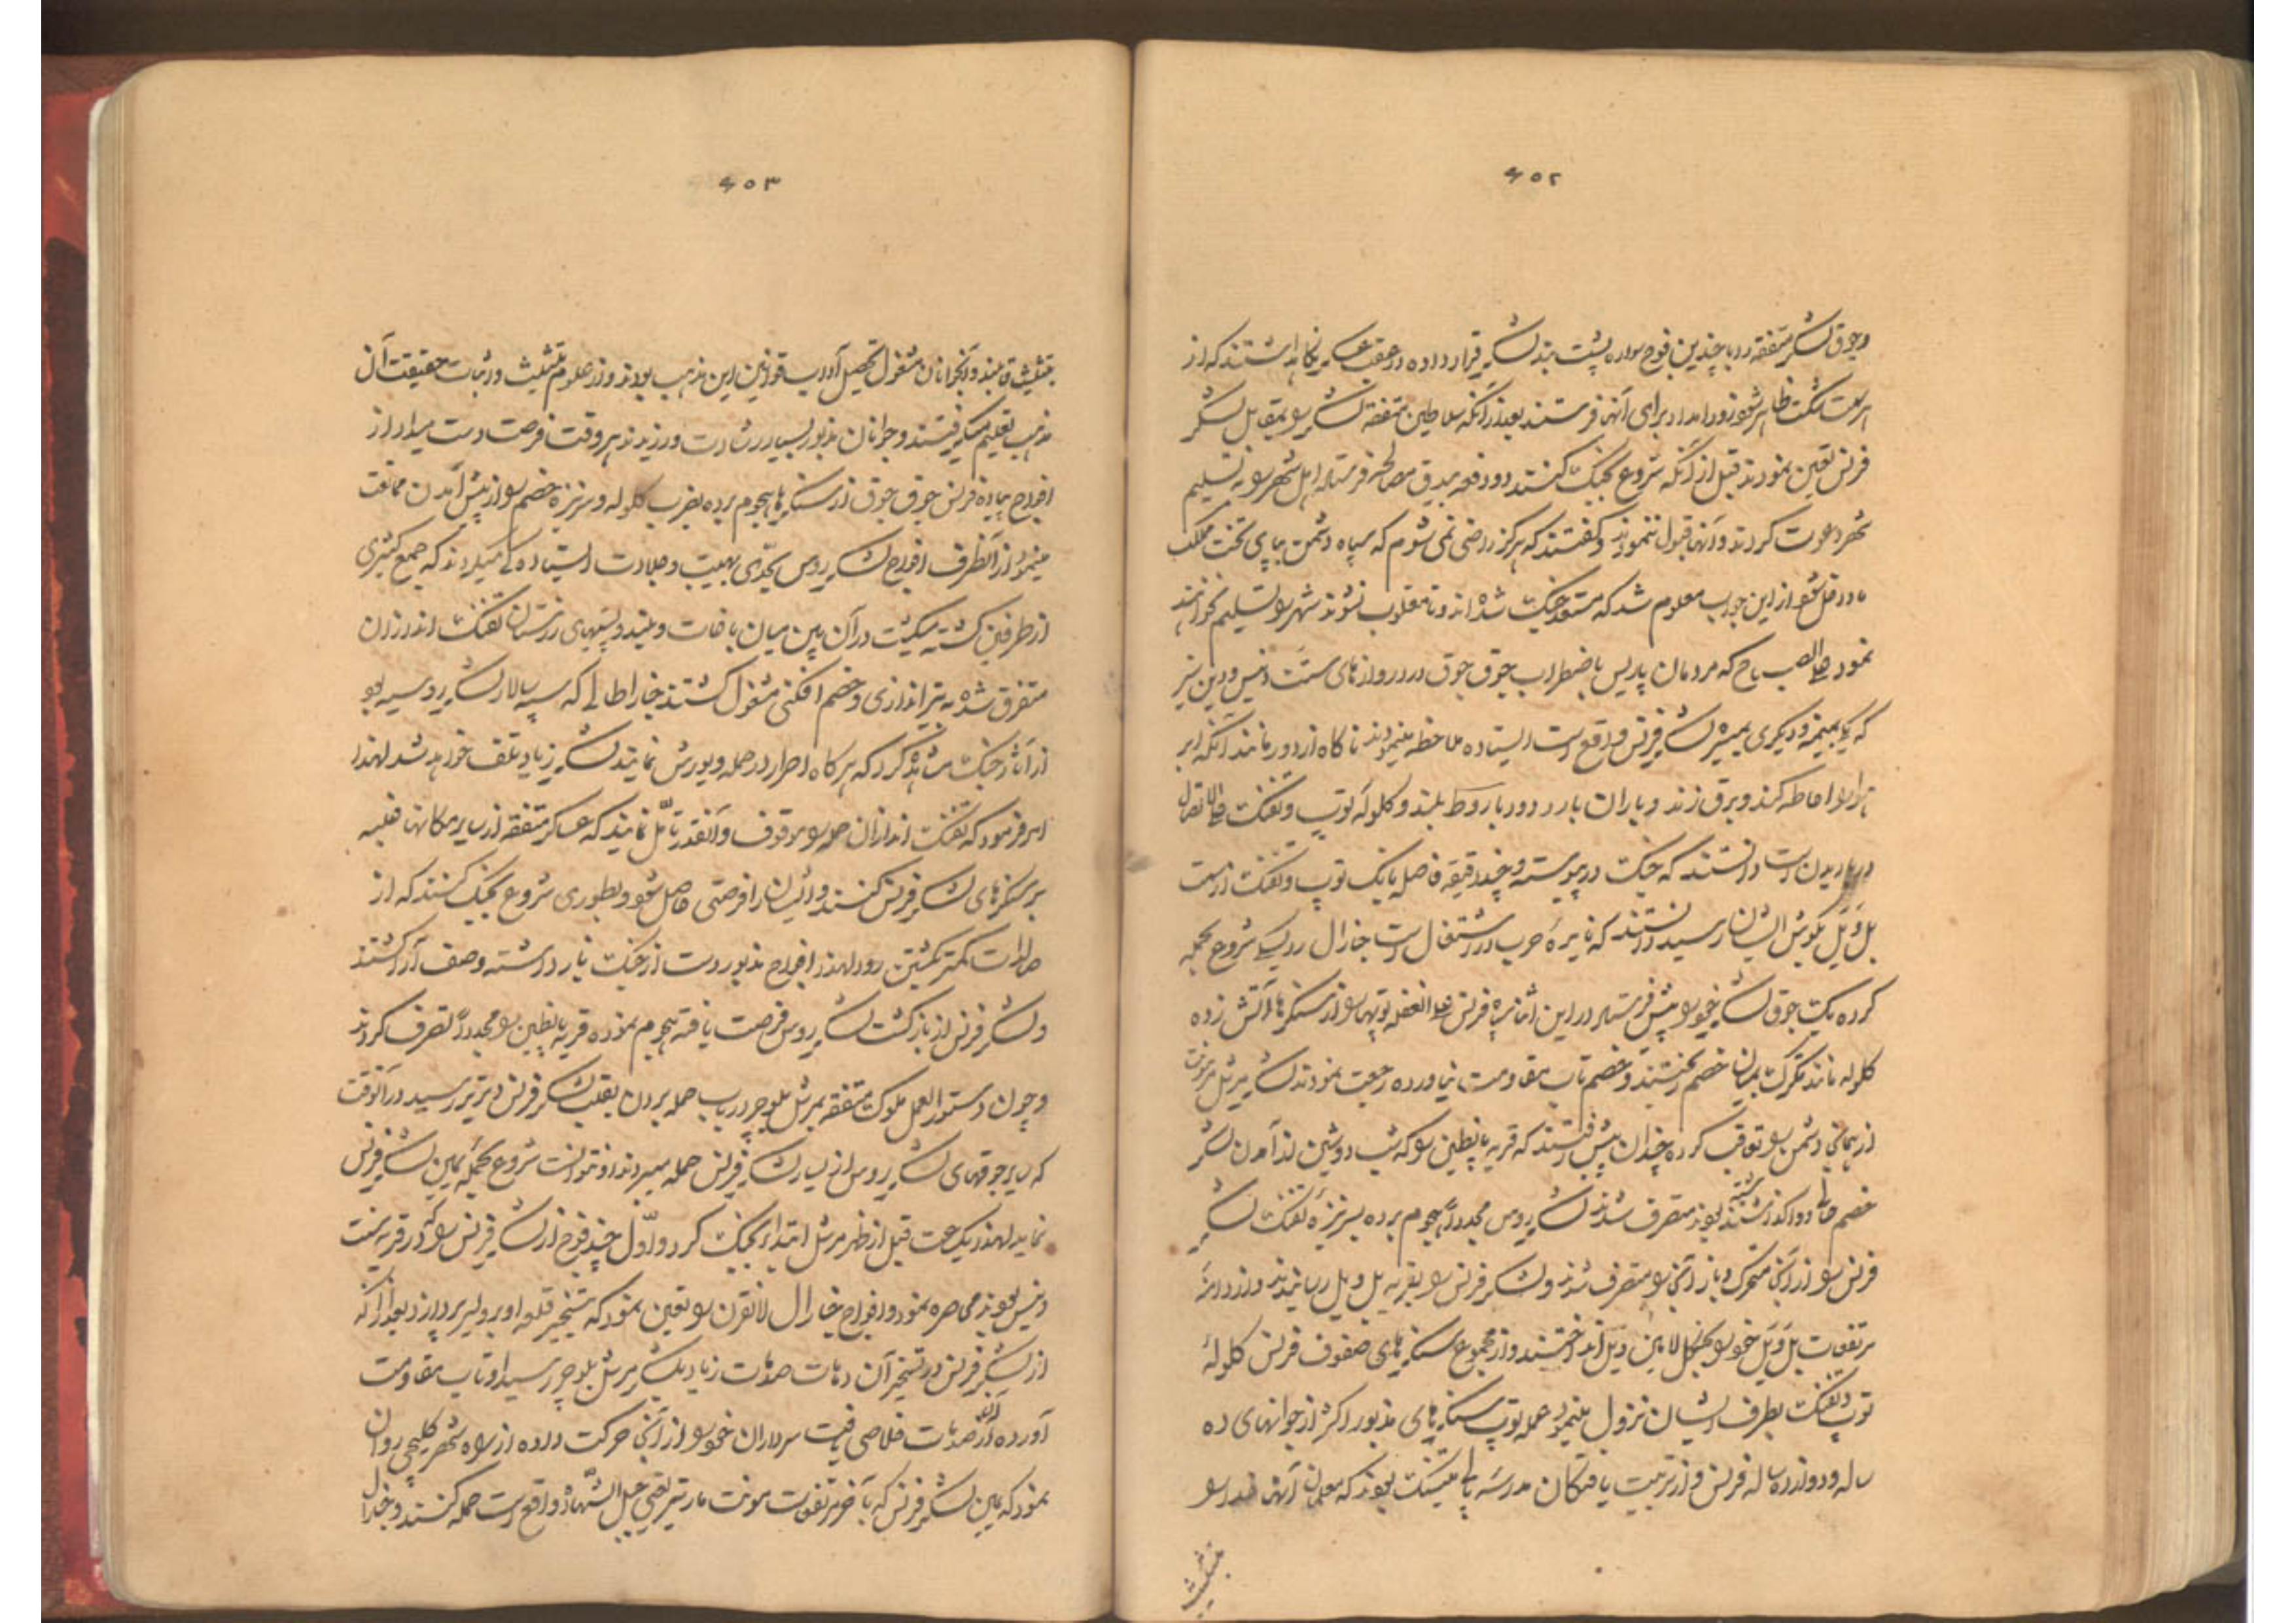 ۶۵۲
وجوق لشکر متفقه را با چندین فوج سواره پشت بند لشکر قرار داده در عقب عسکر نگاه داشتند که از
هر سمت شکست ظاهر شود زود امداد برای آنها فرستند بعد از آنکه سلاطین متفقه لشکر را بمقابل لشکر
فرنس تعین نمودند قبل از آنکه شروع بجنگ کنند دو دفعه بیدق مصالحه فرستاده اهل شهر را به تسلیم
شهر دعوت کردند و آنها قبول ننمودند و گفتند که هرگز راضی نمی شوم که سپاه دشمن بپای تخت مملکت
ما داخل شود از این جواب معلوم شد که مستعد جنگ شده اند و تا مغلوب نشوند شهر را تسلیم نخواهند
نمود علی الصباح که مردمان پاریس باضطراب جوق جوق در دروازهای سنت دنیس و وین سنز
که یکی بمیمنه و دیگری بمیسره لشکر فرنس واقع است ایستاده ملاحظه مینمودند ناگاه از دور مانند آنکه ابر
هوا را احاطه کند و برق زند و باران بارد دود باروط بلند و گلوله توپ و تفنگ علی الاتصال
در باریدن است دانستند که جنگ در پیوسته و چند دقیقه فاصله بانک توپ و تفنگ از سمت
بل ویل بگوش ایشان رسید دانستند که نایره حرب در اشتعال است جنارال روسی شروع بحمله
کرده یک جوق لشکر خود را پیش فرستاد در این اثنا سپاه فرنس علی الغفله توپها را از سنگرها آتش زده
گلوله مانند تگرگ بمیان خصم ریختند و خصم تاب مقاومت نیاورده رجعت نمودند لشکر مرشل مرمونت
از همانجا دشمن را تعاقب کرده چندان پیش رفتند که قریه پانطین را که شب دوشین از آمدن لشکر
خصم خالی و واگذاشته بودند متصرف شدند لشکر روس مجدداً هجوم برده بسرنیزه تفنگ لشکر
فرنس را از آنجا متحرک و باز آنجا را متصرف شدند و لشکر فرنس را بقریه بل ویل رسانیدند و از دامنه
مرتفعات بل ویل خود را بجنگل لامین ویل انداختند و از مجموع سنگرهای صفوف فرنس گلوله
توپ و تفنگ بطرف ایشان نزول مینمود و عمله توپ سنگرهای مذبور اکثر از جوانهای ده
ساله و دوازده ساله فرنس و از تربیت یافتگان مدرسه پالی تیکنک بودند که معلمان آنها خدا را
بتثلیث
۶۵۳
بتثلیث قایلند و آنجوانان مشغول تحصیل آداب و قوانین این مذهب بودند و از علوم تثلیث و اثبات حقیقت آن
مذهب تعلیم میگرفتند و جوانان مذبور بسیار رشادت ورزیدند هر وقت فرصت دست میداد از
افواج پیاده فرنس جوق جوق از سنگرها هجوم برده بضرب گلوله و سرنیزه خصم را از پیش آمدن ممانعت
مینمود از آنطرف افواج لشکر روس بحدی بهیبت و جلادت ایستاده گی میکردند که جمع کثیری
از طرفین کشته میگشت در آن بین میان باغات و بلند و پستیهای رزستان تفنگ اندازان
متفرق شده به تیراندازی و خصم افکنی مشغول گشتند جنارا طالی که سپه سالار لشکر روسیه بود
از آثار جنگ مشاهده کرد که هر گاه اصرار در حمله و یورش نمایند لشکر زیاد تلف خواهد شد لهذا
امر فرمود که تفنگ اندازان حمله را موقوف و آنقدر تأمل نمایند که عساکر متفقه از سایر مکانها غلبه
بر سنگرهای لشکر فرنس کنند و ایشان را فرصتی حاصل شود و بطوری شروع بجنگ کنند که از
صالدات کمتر بکشتن رود لهذا افواج مذبور دست از جنگ باز داشته وصف آرا گشتند
و لشکر فرنس از بازگشت لشکر روس فرصت یافته هجوم نموده قریه پانطین را مجدداً تصرف کردند
و چون دستور العمل ملوک متفقه بمرشل بلوچر در باب حمله بردن بقلب لشکر فرنس دیرتر رسید در آنوقت
که سایر جوقهای لشکر روس از یسار لشکر فرنس حمله میبردند او نتوانست شروع بحمله یمین لشکر فرنس
نماید لهذا یکساعت قبل از ظهر مرشل ابتدا بجنگ کرد و اول چند فوج از لشکر فرنس را که در قریه سنت
دنیس بودند محاصره نمود و افواج جنارال لانقرن را تعین نمود که بتسخیر قلعه اوبرولیر پردازد بعد از آنکه
از لشکر فرنس در تسخیر آن دهات صدمات زیاد بلشکر مرشل بلوچر رسید او تاب مقاومت
آورده از آن صدمات خلاصی یافت سرداران خود را از آنجا حرکت داده از راه شهر کلیچی روان
نمود که یمین لشکر فرنس که بآخر مرتفعات مونت مارتر یعنی جبل الشهداء واقع است حمله کنند و جنرال